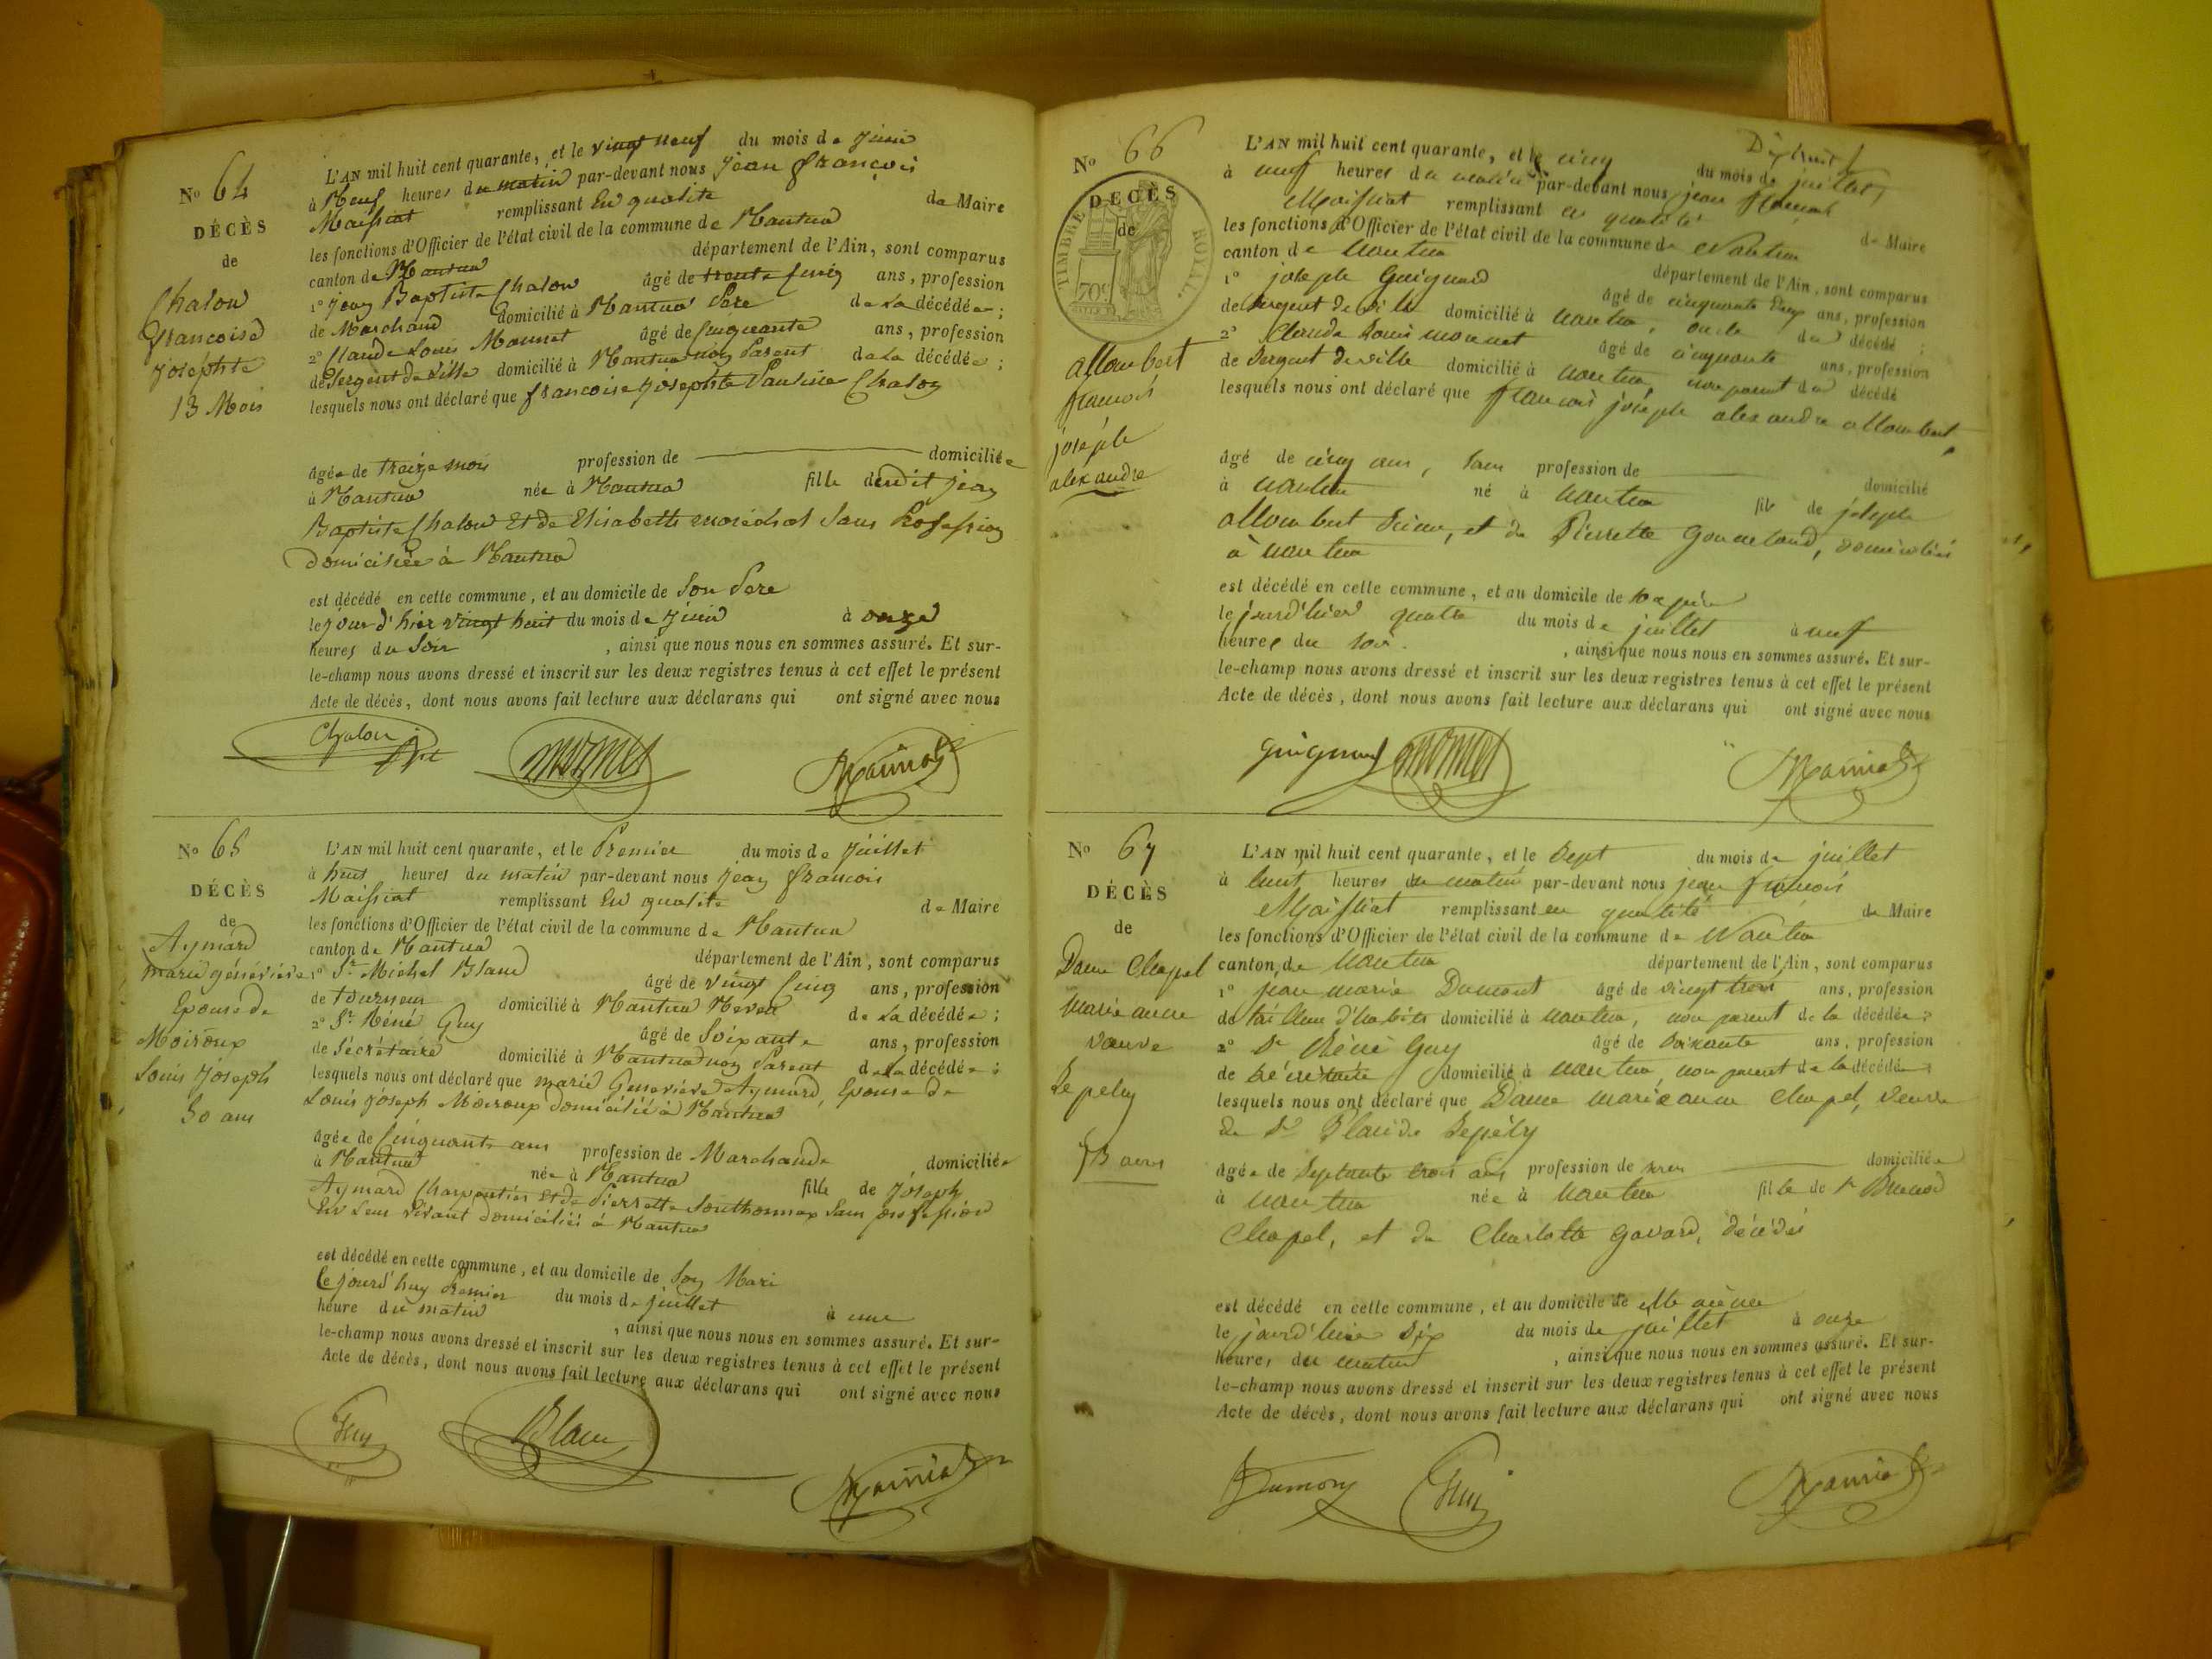 No 64
DÉCÈS
de
Chalon
Françoise
Joséphte
13 Mois
L'AN mil huit cent quarante, et le vingt neuf du mois de Juin
à Neuf heures du matin par-devant nous Jean François
Maissiat remplissant En qualité de Maire
les fonctions d'Officier de l'état civil de la commune de Nantua
canton de Nantua département de l'Ain, sont comparus
1° Jean Baptiste Chalon âgé de trente cinq ans, profession
de Marchand domicilié à Nantua Père de La décédée;
2° Claude Louis Monnet âgé de Cinquante ans, profession
de Sergent de Ville domicilié à Nantua non Parent de La décédée;
lesquels nous ont déclaré que françoise Josephte Pauline Chalon
âgée de treize mois profession de domiciliée
à Nantua née à Nantua fille dudit Jean
Baptiste Chalon Et de Elisabeth maréchal Sans Profession
domiciliée à Nantua
est décédé en cette commune, et au domicile de Son Père
le jour d'hier vingt huit du mois de Juin à onze
heures du Soir, ainsi que nous nous en sommes assuré. Et sur-
le-champ nous avons dressé et inscrit sur les deux registres tenus à cet effet le présent
Acte de décès, dont nous avons fait lecture aux déclarans qui ont signé avec nous
Chalon Monnet Maissiat
No 65
DÉCÈS
de
Aymard
marie géneviève
Epouse de
Moiroux
Louis Joseph
50 ans
L'AN mil huit cent quarante, et le Premier du mois de Juillet
à huit heures du matin par-devant nous Jean François
Maissiat remplissant En qualité de Maire
les fonctions d'Officier de l'état civil de la commune de Nantua
canton de Nantua département de l'Ain, sont comparus
1° Sr Michel Blanc âgé de vingt Cinq ans, profession
de tourneur domicilié à Nantua Neveu de La décédée;
2° Sr Réné Guy âgé de Soixante ans, profession
de Sécrétaire domicilié à Nantua non Parent de La décédée;
lesquels nous ont déclaré que marie Geneviève Aymard, Epouse de
Louis Joseph Moiroux domicilié à Nantua
âgée de Cinquante ans profession de Marchande, domiciliée
à Nantua née à Nantua fille de Joseph
Aymard Charpentier Et de Pierrette Southonnax Sans profession
En Leur vivant domiciliés à Nantua
est décédé en cette commune, et au domicile de Son Mari
le jourd'huy Premier du mois de juillet à une
heure du matin, ainsi que nous nous en sommes assuré. Et sur-
le-champ nous avons dressé et inscrit sur les deux registres tenus à cet effet le présent
Acte de décès, dont nous avons fait lecture aux déclarans qui ont signé avec nous
Guy Blanc Maissiat
Dix huit
No 66
DÉCÈS
de
TIMBRE ROYAL.
70c
allombert
françois
joseph
alexandre
L'AN mil huit cent quarante, et le cinq du mois de juillet,
à neuf heures du matin par-devant nous jean françois
Maissiat remplissant en qualité de Maire
les fonctions d'Officier de l'état civil de la commune de Nantua
canton de Nantua département de l'Ain, sont comparus
1° joseph Guignard âgé de cinquante cinq ans, profession
de Sergent de ville domicilié à Nantua, oncle du décédé;
2° Claude Louis monnet âgé de cinquante ans, profession
de Sergent de ville domicilié à Nantua, non parent du décédé
lesquels nous ont déclaré que françois joseph alexandre allombert,
âgé de cinq ans, Sans profession de domicilié
à Nantua né à Nantua fils de joseph
allombert, et de Pierrette, domiciliés
à Nantua
est décédé en cette commune, et au domicile de son père
le jourd'hier quatre du mois de juillet à neuf
heures du soir, ainsi que nous nous en sommes assuré. Et sur-
le-champ nous avons dressé et inscrit sur les deux registres tenus à cet effet le présent
Acte de décès, dont nous avons fait lecture aux déclarans qui ont signé avec nous
Guignard Monnet Maissiat
No 67
DÉCÈS
de
Dame Chapel
marie anne
veuve
Depeley
73 ans
L'AN mil huit cent quarante, et le Sept du mois de juillet
à huit heures du matin par-devant nous jean françois
Maissiat remplissant en qualité de Maire
les fonctions d'Officier de l'état civil de la commune de Nantua
canton de Nantua département de l'Ain, sont comparus
1° jean marie Dumont âgé de vingt trois ans, profession
de tailleur d'habits domicilié à Nantua, non parent de la décédée;
2° Sr Réné Guy âgé de Soixante ans, profession
de Sécrétaire domicilié à Nantua, non parent de la décédée
lesquels nous ont déclaré que Dame marie anne Chapel, veuve
de Sr Claude Depély
âgée de Septante trois ans profession de domiciliée
à Nantua née à Nantua fille de Sr
Chapel, et de Charlotte Gavard, décédés
est décédé en cette commune, et au domicile de elle même
le jourd'hier Six du mois de juillet à onze
heures du matin, ainsi que nous nous en sommes assuré. Et sur-
le-champ nous avons dressé et inscrit sur les deux registres tenus à cet effet le présent
Acte de décès, dont nous avons fait lecture aux déclarans qui ont signé avec nous
Dumont Guy Maissiat